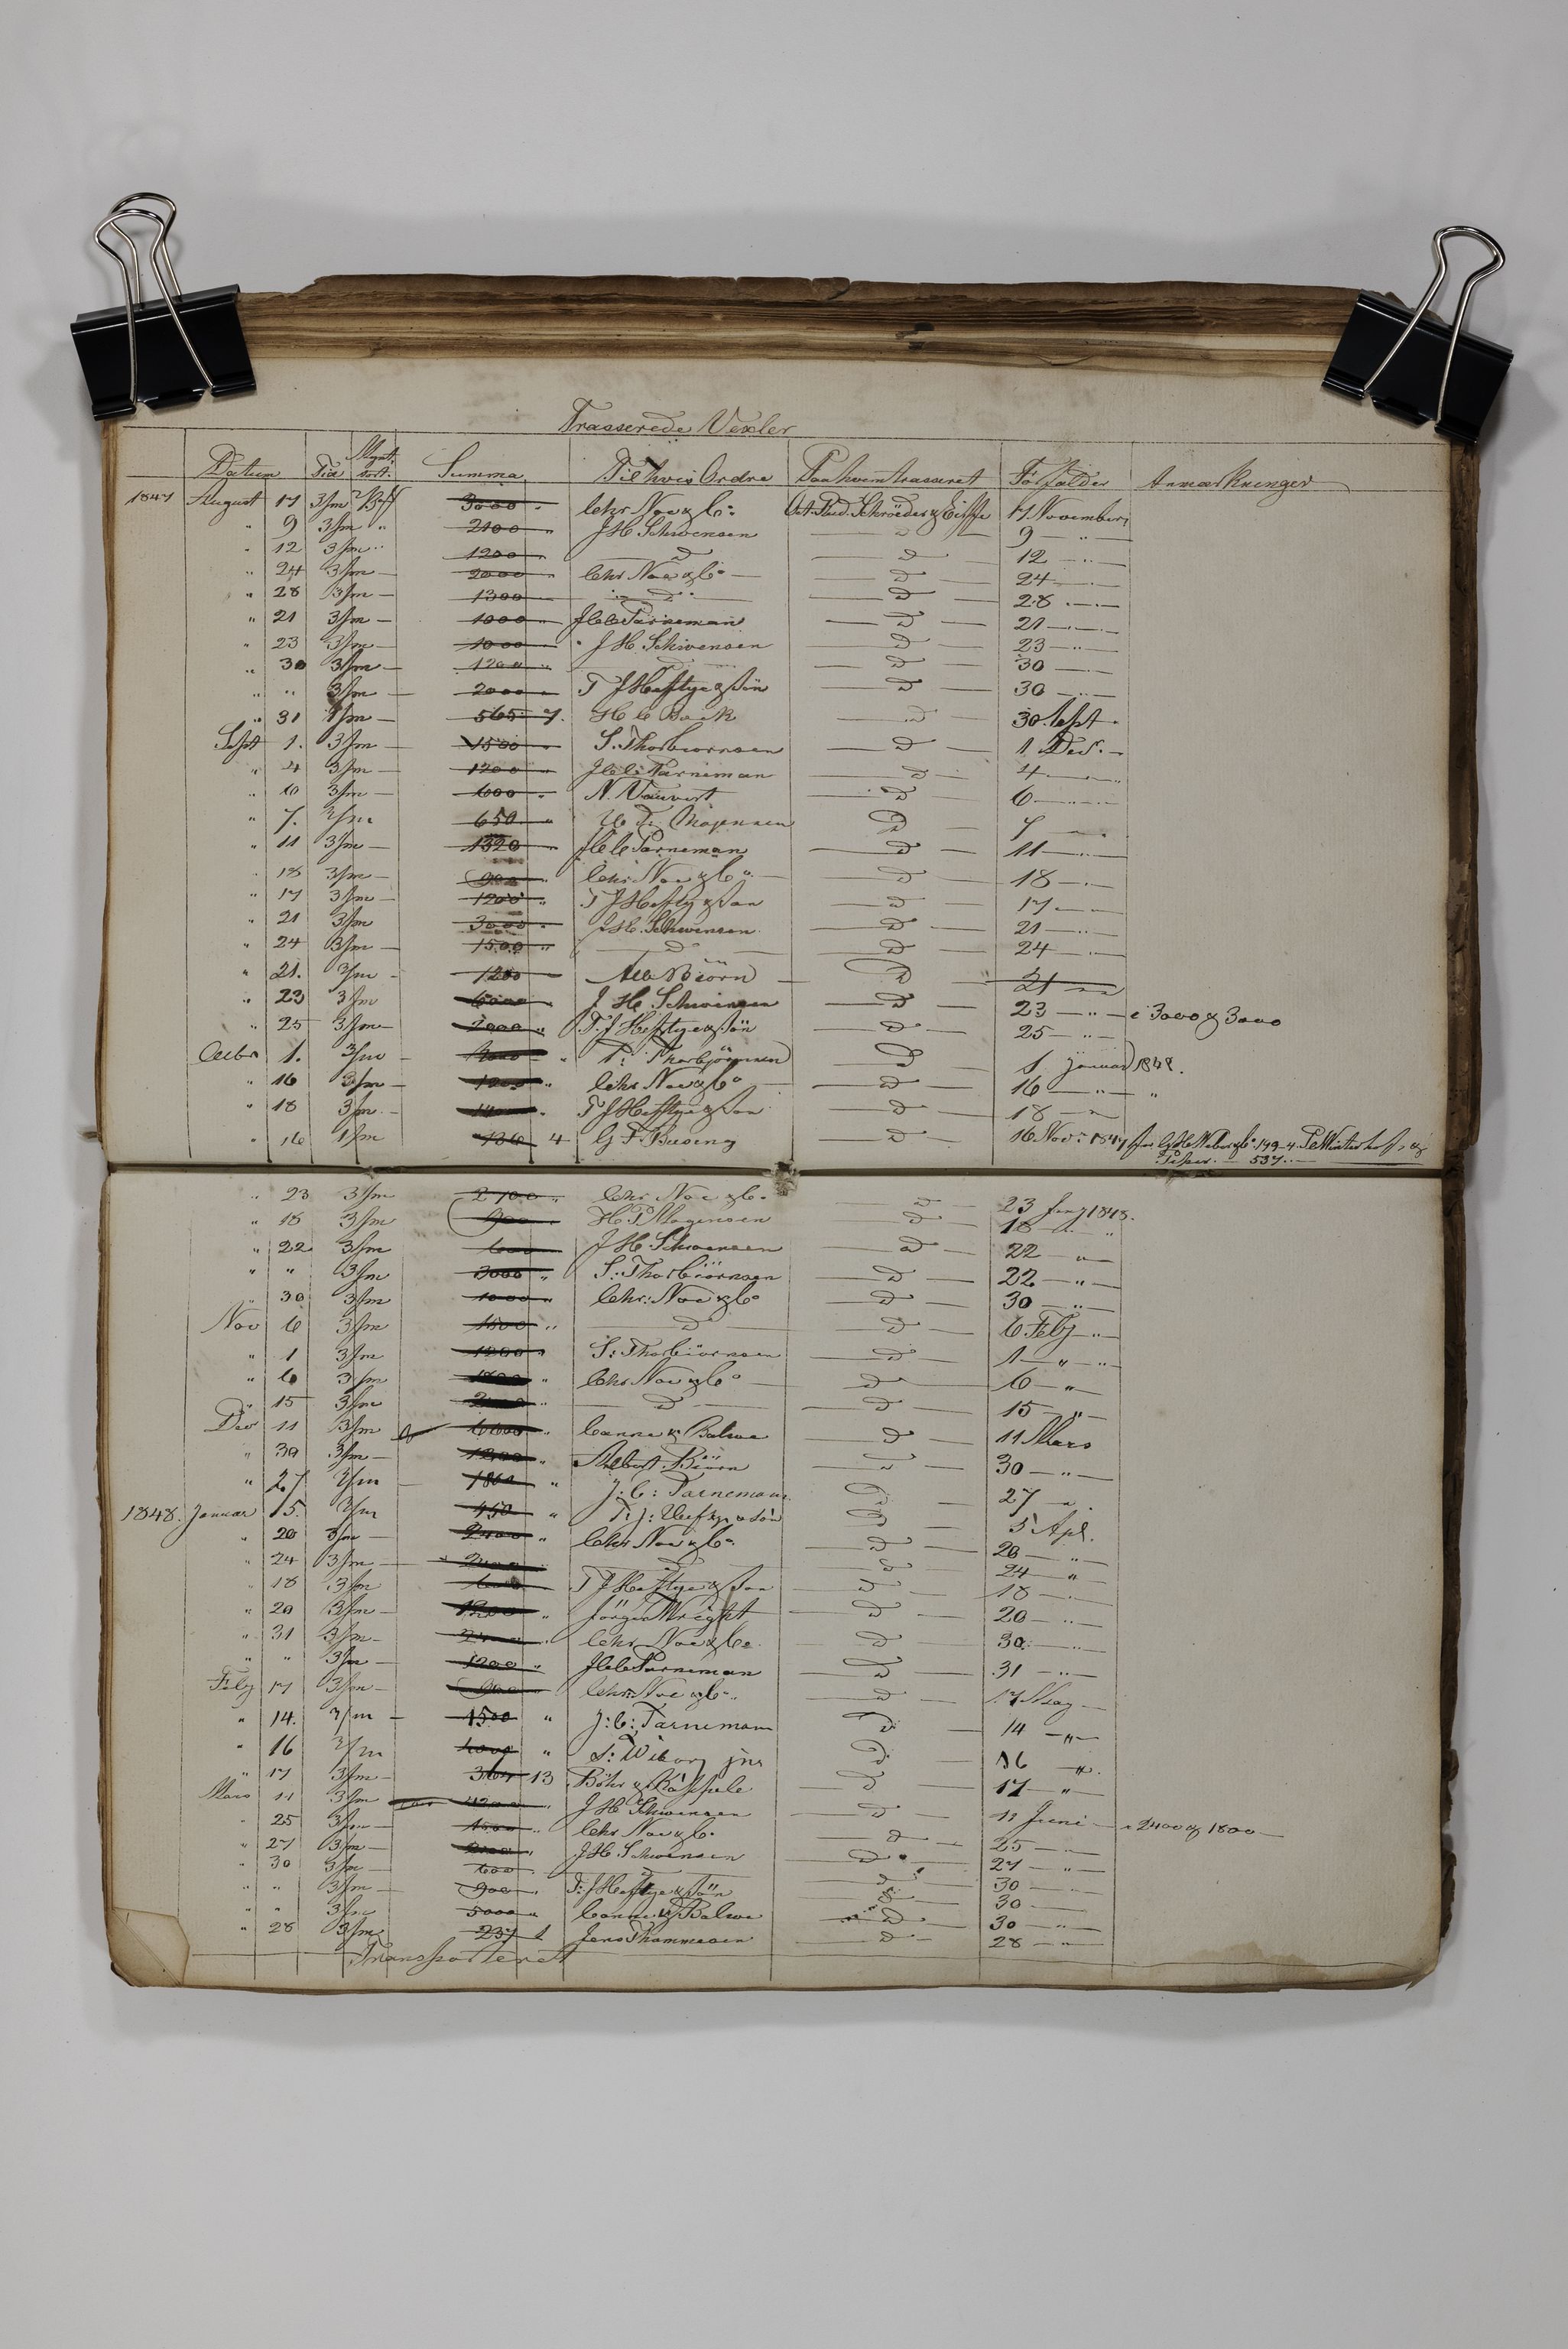 Trasserede Vexler
Datum Tid Mynt sort: Summa Til hvis Ordre Paa hvem trasseret Forfalder Anmærkninger
1847 August 17 3/m 3000 " Chr Noe & Co: Schröder & Eiffe 17 November
" 9 3/m " 2100 " J H Schwensen — d — 9 — " —
" 12 3/m " 1200 — d — d — 12 — " —
" 24 3/m — 2000 " Chr Noe & Co — d — 24 — " —
" 28 3/m — 1300 — d — d — 28 — " —
" 21 3/m — 1000 " J C C Parneman — d — 21 — " —
" 23 3/m — 1000 " J H Schwensen — d — 23 — " —
" 30 3/m — 1200 " — d — d — 30 — " —
" " 3/m — 2000 " T J Heftye & Sön — d — 30 — " —
" 31 1/m — 565 7. H C Back — d — 30 Sept —
Sept 1. 3/m — 1500 " S. Thorbiörnsen — d — 1 Dec. —
" 4 3/m — 1200 " J C C Parneman — d — 4 — " —
" 6 3/m — 600 " N. Vauvert — d — 6 — " —
" 7. 3/m 650 " Mogensen — D — 7 — " —
" 11 3/m — 1320 " J C C Parneman — d — 11 — " —
" 18 3/m — 900 " Chr Noe & Co — d — 18 — " —
" 17 3/m — 1200 " T J Hefty & Sön — d — 17 — " —
" 21 3/m 3000 " J H Schwensen — d — 21 — " —
" 24 3/m — 1500 " — d — d — 24 — " —
" 21. 3/m — 1200 Alb Biörn — D — 21 — " —
" 23 3/m 6000 " J H Schwensen — d — 23 — " — à 3000 & 3000
" 25 3/m — 2000 " T. J Heftye & Sön — d — 25 — " —
Octbr 1. 3/m — " Thorbjörnsen — D — 1 Januar 1848.
" 16 3/m — 1200 " Chr Noe & Co — d — 16 — " — "
" 18 3/m — " T J Heftye & Sön — d — 18 — " —
" 16 1/m 736 4 G F Buseng — d — 16 Nov: 1847 for Weber & Co 199-4. P Winter
537. —
" 23 3/m 2700 " Chr Noe & Co. — d — 23 Jany 1848.
" 18 3/m 900 H P Mogensen — d — 18 — "
" 22 3/m 600 J H Schwensen — d — 22 — " —
" " 3/m 3000 " S: Thorbiörnsen — d — 22 — " —
" 30 3/m 1000 Chr: Noe & Co — d — 30 — " —
Nov 6 3/m 1500 " — d — d — 6 Feby — " —
" 1 3/m 1200 " S: Thorbiörnsen — d — 1 — " — " —
" 6 3/m 1800 " Chr Noe & Co — d — 6 — " —
" 15 3/m " — d — d — 15 — " —
Dec 11 3/m 6000 " Canne & Balwe — d — 11 Mars
" 30 3/m — 1200 " Albert Biörn — d — 30 — " —
" 27 3/m — 1800 " J: C: Parnemann — D — 27 — " .
1848. Januar 5. 3/m 450 " T: J: Heftye & Sön — D — 5 Apl.
" 20 3/m — 2400 " Chr Noe & Co. — d — 20 — " —
" 24 3/m — 2400 " — d — d — 24 — " —
" 18 3/m " T J Heftye & Sön — d — 18 — " —
" 20 3/m — " Jörgen Wright — d — 20 — " —
" 31 3/m — " Chr Noe & Co. — d — 30. — " —
" " 3/m — 1200 " J C C Parneman — d — 31 — " —
Feby 17 3/m — 900 " Chr: Noe & Co. — d — 17 May —
" 14. 3/m — 1500 " J: C: Parnemann — D — 14 — " —
" 16 3/m " S: Wiborg jnr — D — 16 — " .
" 17 3/m — 367 13 Böhr & Käppele — d — 17 — " —
Mars 11 3/m " J H Schwensen — d — 11 Juni — à 2400 & 1800 —
" 25 3/m — 1500 " Chr Noe & Co. — d — 25 — " —
" 27 3/m — " J H Schwensen — d — 27 — " —
" 30 3/m — 600 " — d — d — 30 — " —
" " 3/m — 900 " T: J Heftye & Sön — d — 30 — " —
" " 3/m 5000 " Canne & Balwe — d — 30 — " —
" 28 3/m 237 1 Jens Thommesen — d — 28 — " —
Transporteret